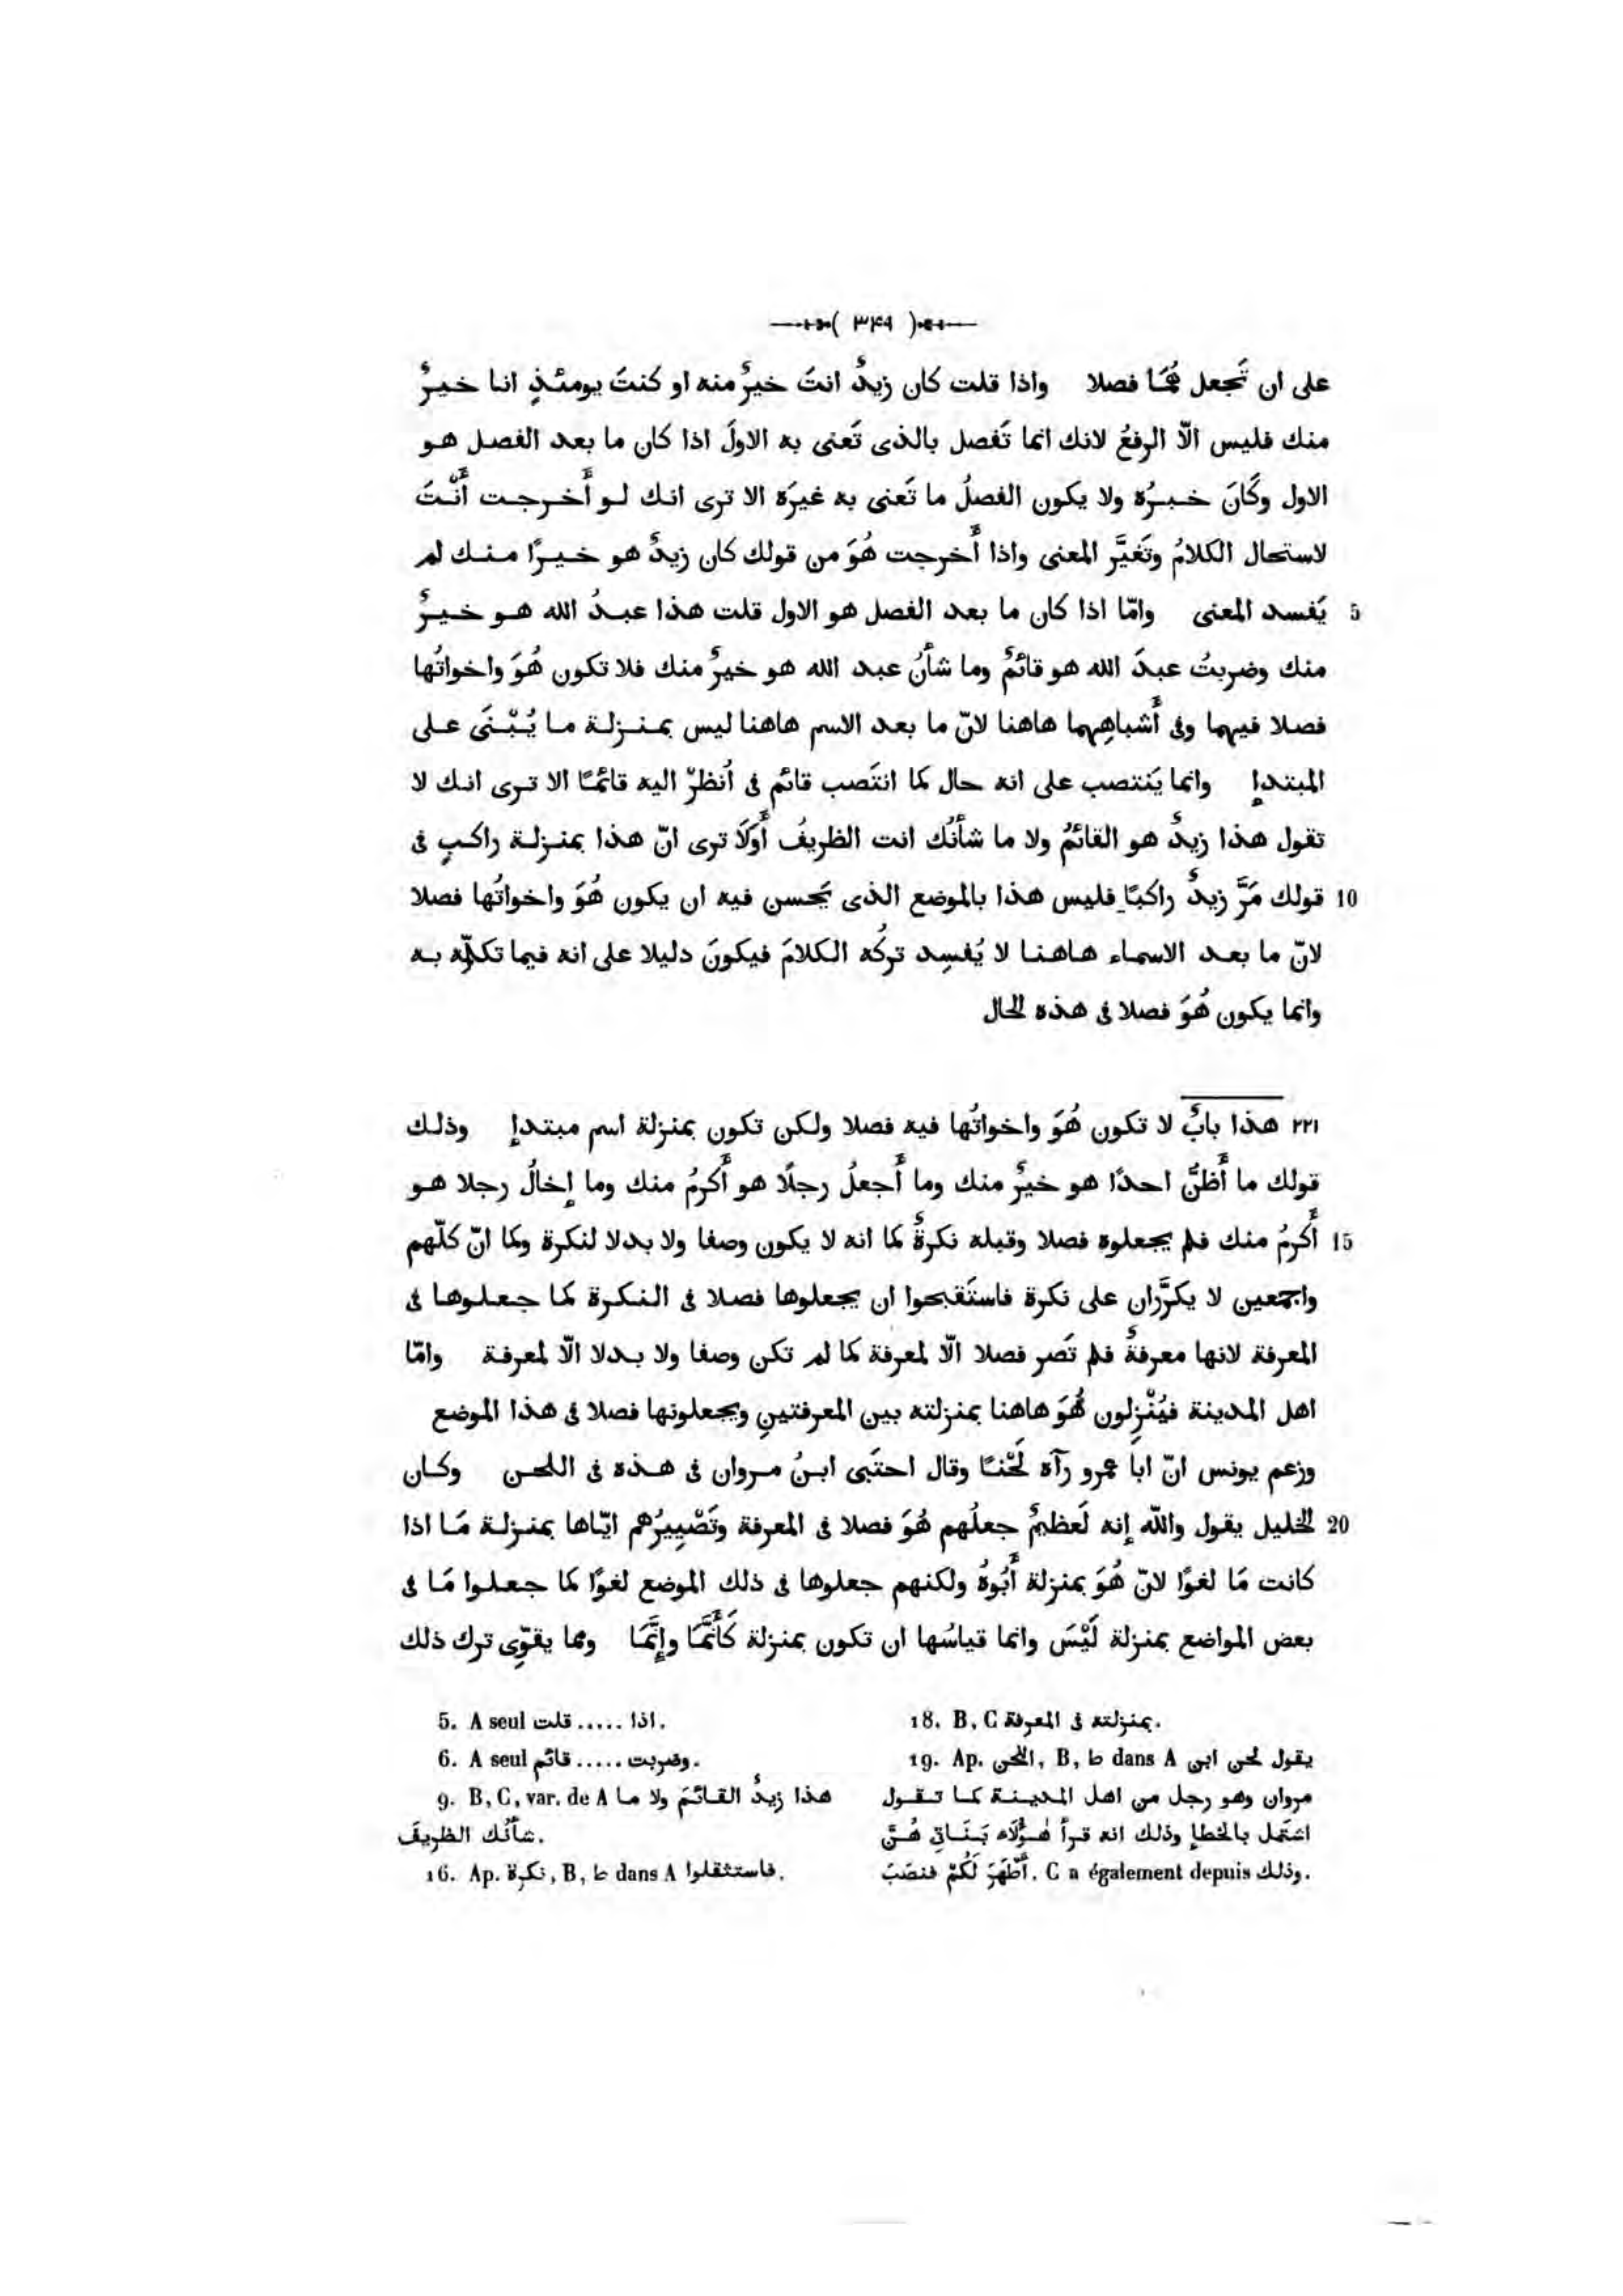 ( ٣٤٩ )
على ان تَجعل هُمَا فصلا واذا قلت كان زيدٌ انتَ خيرٌ منه او كنتَ يومئذٍ انا خيرٌ
منك فليس الّا الرفعُ لانك انما تَفصل بالذى تَعنى به الاولَ اذا كان ما بعد الفصل هو
الاول وكَانَ خبرُه ولا يكون الفصلُ ما تَعنى به غيرَه الا ترى انك لو أَخرجت أَنْتَ
لاستحال الكلامُ وتَغيَّر المعنى واذا أَخرجت هُوَ من قولك كان زيدٌ هو خيرًا منك لم
5 يَفسد المعنى وامّا اذا كان ما بعد الفصل هو الاول قلت هذا عبدُ الله هو خيرٌ
منك وضربتُ عبدَ الله هو قائمٌ وما شأنُ عبد الله هو خيرٌ منك فلا تكون هُوَ واخواتُها
فصلا فيهما وفى أَشباهِهما هاهنا لانّ ما بعد الاسم هاهنا ليس بمنزلة ما يُبْنَى على
المبتدإ وانما يَنتصب على انه حال كما انتَصب قائم فى اُنظرْ اليه قائمًا الا ترى انك لا
تقول هذا زيدٌ هو القائمُ ولا ما شأنُك انت الظريفُ أَوَلَا ترى انّ هذا بمنزلة راكبٍ فى
10 قولك مَرَّ زيدٌ راكبًا فليس هذا بالموضع الذى يَحسن فيه ان يكون هُوَ واخواتُها فصلا
لانّ ما بعد الاسماء هاهنا لا يُفسِد تركُه الكلامَ فيكونَ دليلا على انه فيما تكلّمه به
وانما يكون هُوَ فصلا فى هذه الحال
٢٢١ هذا بابٌ لا تكون هُوَ واخواتُها فيه فصلا ولكن تكون بمنزلة اسم مبتدإ وذلك
قولك ما أَظنُّ احدًا هو خيرٌ منك وما أَجعلُ رجلًا هو أَكرمُ منك وما إخالُ رجلا هو
15 أَكرمُ منك فلم يجعلوه فصلا وقبله نكرةٌ كما انه لا يكون وصفا ولا بدلا لنكرة وكما انّ كلّهم
واجمعين لا يكرَّران على نكرة فاستَقبحوا ان يجعلوها فصلا فى النكرة كما جعلوها فى
المعرفة لانها معرفةٌ فلم تَصر فصلا الّا لمعرفة كما لم تكن وصفا ولا بدلا الّا لمعرفة وامّا
اهل المدينة فيُنْزِلون هُوَ هاهنا بمنزلته بين المعرفتينِ ويجعلونها فصلا فى هذا الموضع
وزعم يونس انّ ابا عمرو رآه لَحْنًا وقال احتَبى ابنُ مروان فى هذه فى اللحن وكان
20 الخليل يقول والله إنه لَعظيمٌ جعلُهم هُوَ فصلا فى المعرفة وتَصْيِيرُهم ايّاها بمنزلة مَا اذا
كانت مَا لغوًا لانّ هُوَ بمنزلة أَبُوهُ ولكنهم جعلوها فى ذلك الموضع لغوًا كما جعلوا مَا فى
بعض المواضع بمنزلة لَيْسَ وانما قياسُها ان تكون بمنزلة كَأَنَّمَا وإِنَّمَا ومما يقوّى ترك ذلك
5. A seul اذا ..... قلت.
6. A seul وضربت ..... قائم.
9. B, C, var. de A هذا زيدٌ القائمَ ولا ما
شأنُك الظريفَ.
16. Ap. نكرة, B, ط dans A فاستثقلوا.
18. B, C بمنزلته فى المعرفة.
19. Ap. اللحن, B, ط dans A يقول لحن ابن
مروان وهو رجل من اهل المدينة كما تقول
اشتمل بالخطإ وذلك انه قرأ هٰؤُلَاء بَنَاتِى هُنَّ
أَطْهَرَ لَكُمْ فنصَبَ. C a également depuis وذلك.